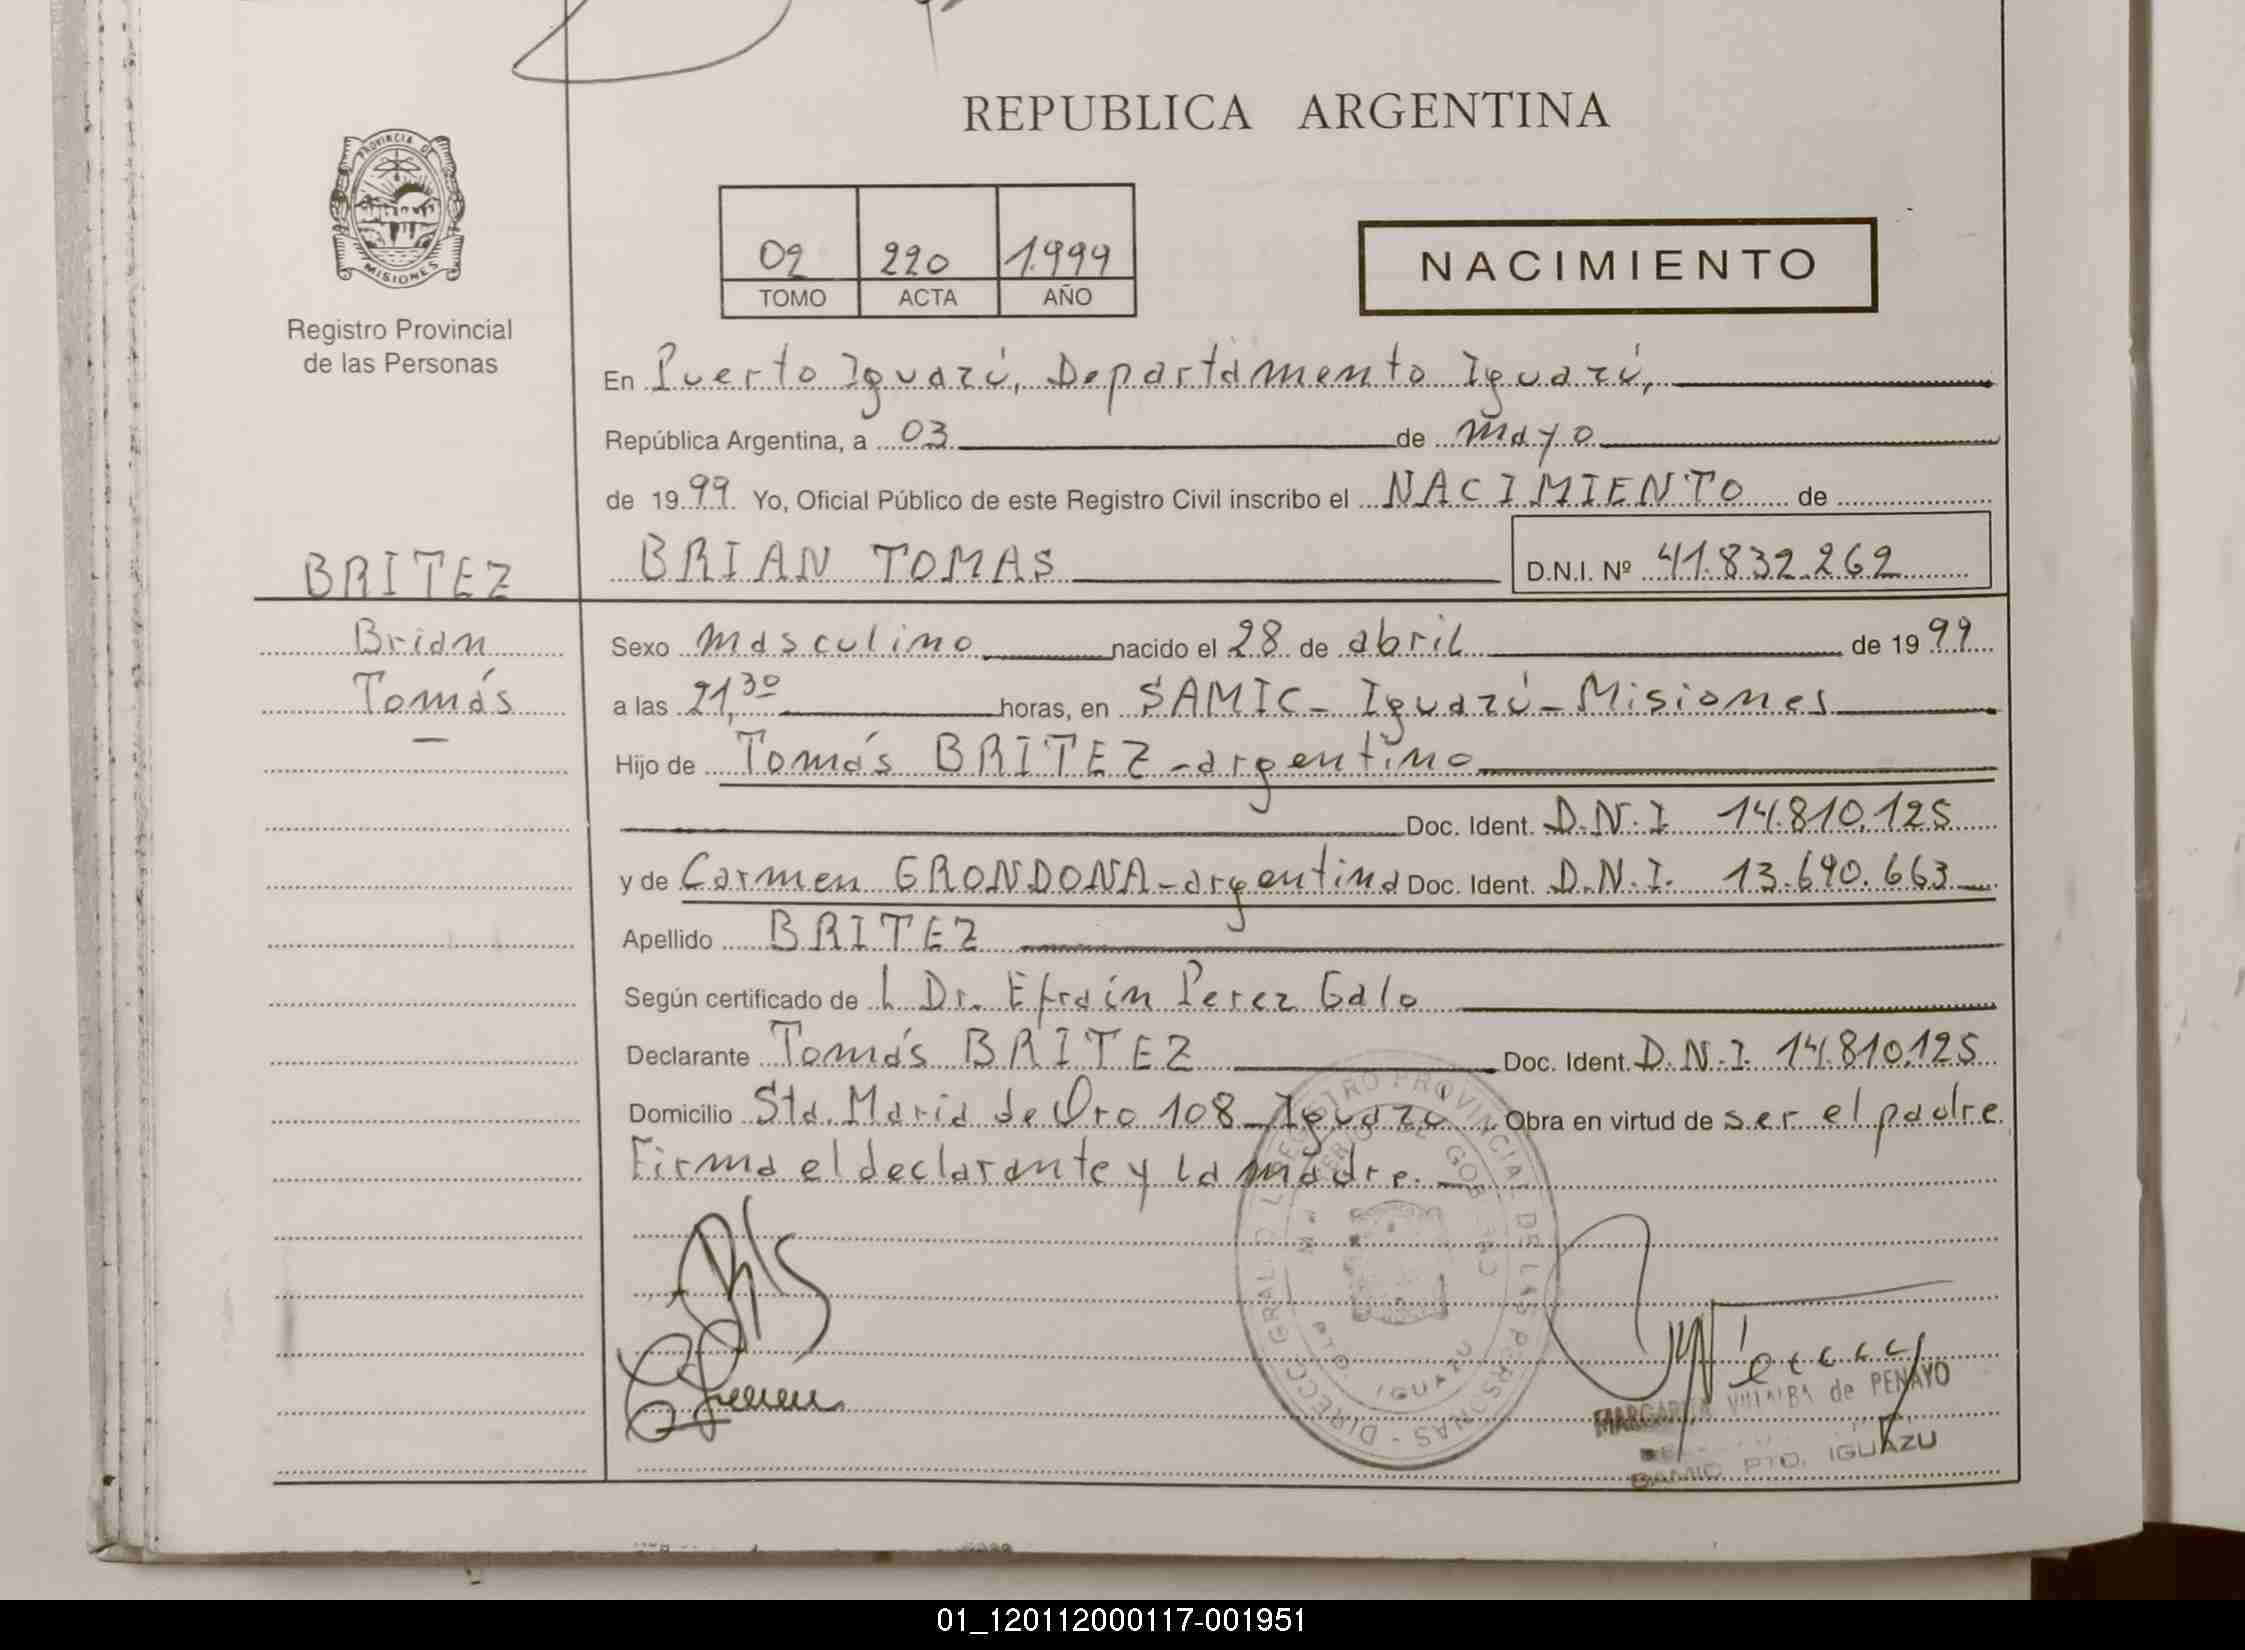 REPUBLICA ARGENTINA
PROVINCIA DE
MISIONES
Registro Provincial
de las Personas
02 220 1.999
TOMO ACTA AÑO
NACIMIENTO
En Puerto Iguazú, Departamento Iguazú,
República Argentina, a 03 de mayo
de 1999 Yo, Oficial Público de este Registro Civil inscribo el NACIMIENTO de
BRITEZ
BRIAN TOMAS D.N.I. Nº 41.832.262
Brian
Tomás
Sexo masculino nacido el 28 de abril de 1999
a las 21,30 horas, en SAMIC - Iguazú - Misiones
Hijo de Tomás BRITEZ - argentino
Doc. Ident. D.N.I 14.810.125
y de Carmen GRONDONA - argentina Doc. Ident. D.N.I. 13.690.663
Apellido BRITEZ
Según certificado de l Dr. Efraín Perez Galo
Declarante Tomás BRITEZ Doc. Ident. D.N.I. 14.810.125
Domicilio Sta. Maria de Oro 108 - Iguazú Obra en virtud de ser el padre
Firma el declarante y la madre. -
DIRECC. GRAL. DEL REGISTRO PROVINCIAL DE LAS PERSONAS
PTO. IGUAZU
MARGARITA VILLALBA de PENAYO
PTO. IGUAZU
01_120112000117-001951